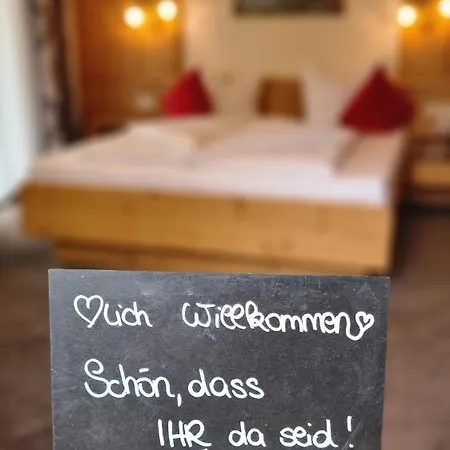 ♡lich Willkommen♡
Schön, dass
IHR da seid!